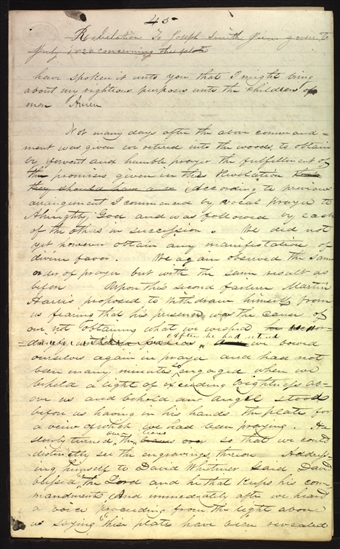 45
Revelation To Joseph Smith Jun given
July 1830 concerning the plates
have spoken it unto you that I might bring
about my righteous purposes unto the children of
men Amen
Not many days after the above command-
ment was given we retired into the woods to obtain
by fervent and humble prayer the fulfilment of
the promises given in this Revelation
they should have a According to previous
arrangement I commenced by vocal prayer to
Almighty God and was followed by each
of the others in succession. We did not
yet however obtain any manifestation of
divine favor. We again observed the same
order of prayer but with the same result as
before Upon this second failure Martin
Harris proposed to withdraw himself from
us fearing that his presence was the cause of
our not obtaining what we wished
after he had retired we bowed
ourselves again in prayer and had not
been many minutes so engaged when we
beheld a light of exceeding brightness ab-
ove us and behold an angel stood
before us having in his hands the plates for
a view of which we had been praying. He
slowly turned them so that we could
distinctly see the engravings thereon Address-
ing himself to David Whitmer said David
blessed is the Lord and he that keeps his com-
mandments And immediately after we heard
a voice proceeding from the light above
us saying these plates have been revealed